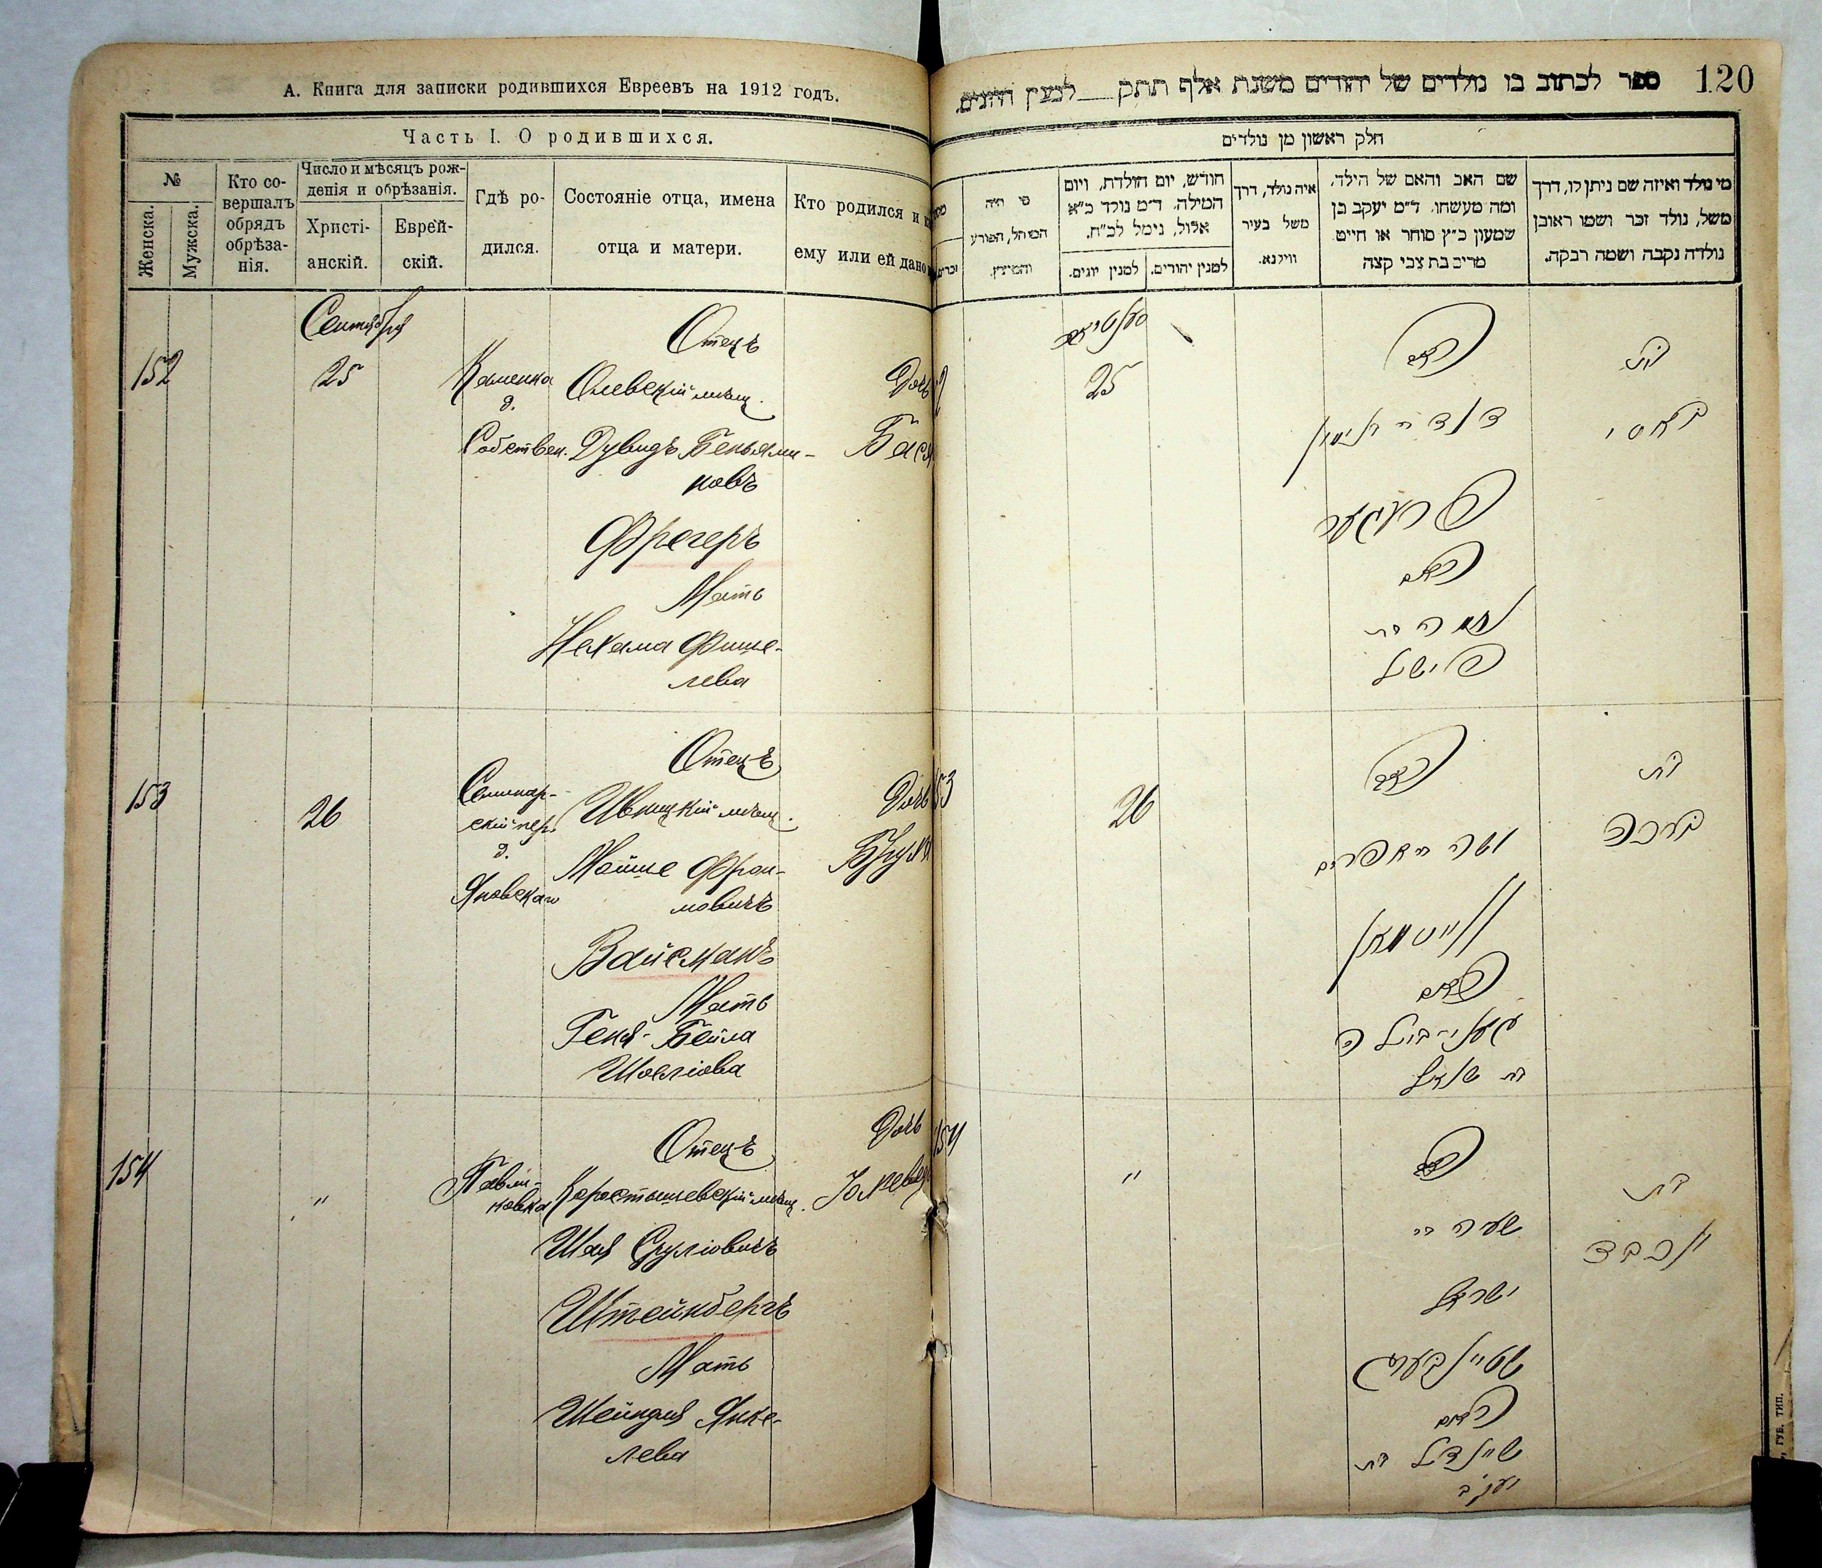 А. Книга для записки родившихся Евреевъ на 1912 годъ.
Часть I. О родившихся.
№
Женска.
Мужска.
Кто со-
вершалъ
обрядъ
обрѣза-
нія.
Число и мѣсяцъ рож-
денія и обрѣзанія.
Христі-
анскій.
Еврей-
скій.
Гдѣ ро-
дился.
Состояніе отца, имена
отца и матери.
Кто родился и
ему или ей дано
Сентября
152
25
Каменка
д.
Собствен.
Отецъ
Олевскій мѣщ.
Дувидъ Беньями-
новъ
Фрегеръ
Мать
Нехама Фише-
лева
Дочь
Бася
153
26
Семинар-
скій пер.
д.
Яновскаго
Отецъ
Ивницкій мѣщ.
Мойше Фрои-
мовичъ
Вайсманъ
Мать
Геня-Бейла
Шоеліова
Дочь
Бруха
154
"
Павли-
ковка
Отецъ
Коростышевскій мѣщ.
Шая Сруліовичъ
Штейнбергъ
Мать
Шейндля Янке-
лева
Дочь
120
ספר לכתוב בו נולדים של יהודים משנת אלף תתק__ למנין היונים.
חלק ראשון מן נולדים
מי נולד ואיזה שם ניתן לו, דרך
משל, נולד זכר ושמו ראובן
נולדה נקבה ושמה רבקה.
שם האב והאם של הילד,
ומה מעשהו. ד"מ יעקב בן
שמעון כ"ץ סוחר או חייט
מרים בת צבי קצה
איה נולד, דרך
משל בעיר
ווילנא.
חודש, יום הולדת, ויום
המילה. ד"מ נולד כ"א
אלול, נימל לכ"ח.
למנין יהודים.
למנין יונים.
מי היה
המוהל, הפורע
והמוצץ.
סענטיאב
25
האב
דוד ב בנימין
פרעגער
האם
נחמה בת
פישל
בת
באסי
53
26
האב
משה ב אפרים
ווייסמאן
האם
געניבילה
בת שואל
בת
ברכה
154
"
האב
שעיה ב
ישראל
שטיינבערג
האם
שיינדל בת
יעקב
בת
יוכבד
ГУБ. ТИП.